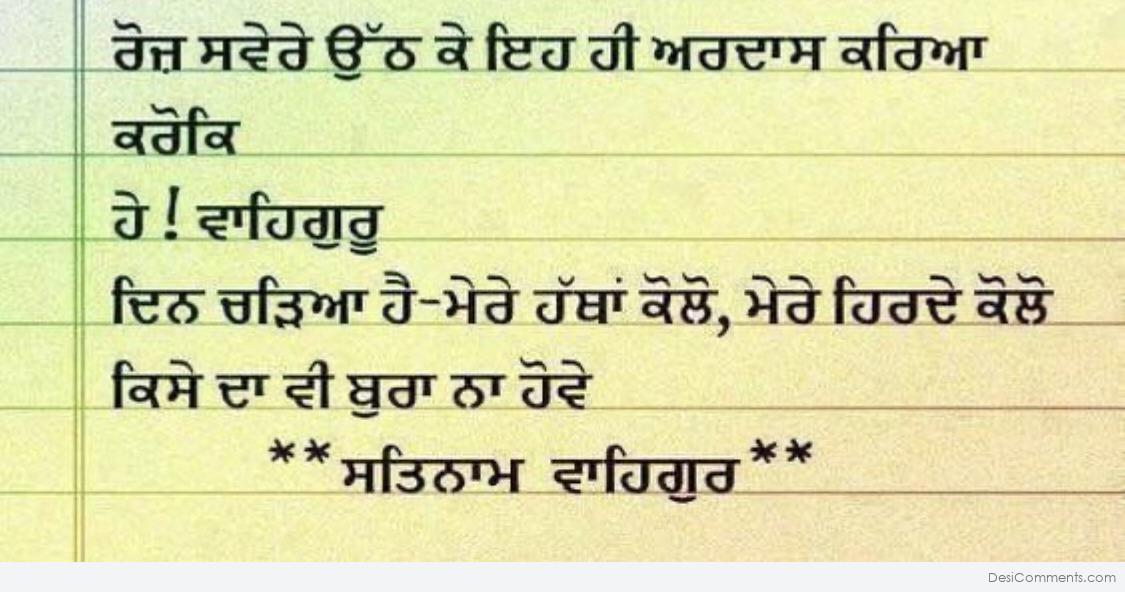 ਰੋਜ਼ ਸਵੇਰੇ ਉੱਠ ਕੇ ਇਹ ਹੀ ਅਰਦਾਸ ਕਰਿਆ
ਕਰੋਕਿ
ਹੇ ! ਵਾਹਿਗੁਰੂ
ਦਿਨ ਚੜਿਆ ਹੈ-ਮੇਰੇ ਹੱਥਾਂ ਕੋਲੋ, ਮੇਰੇ ਹਿਰਦੇ ਕੋਲੋ
ਕਿਸੇ ਦਾ ਵੀ ਬੁਰਾ ਨਾ ਹੋਵੇ
**ਸਤਿਨਾਮ ਵਾਹਿਗੁਰ**
DesiComments.com